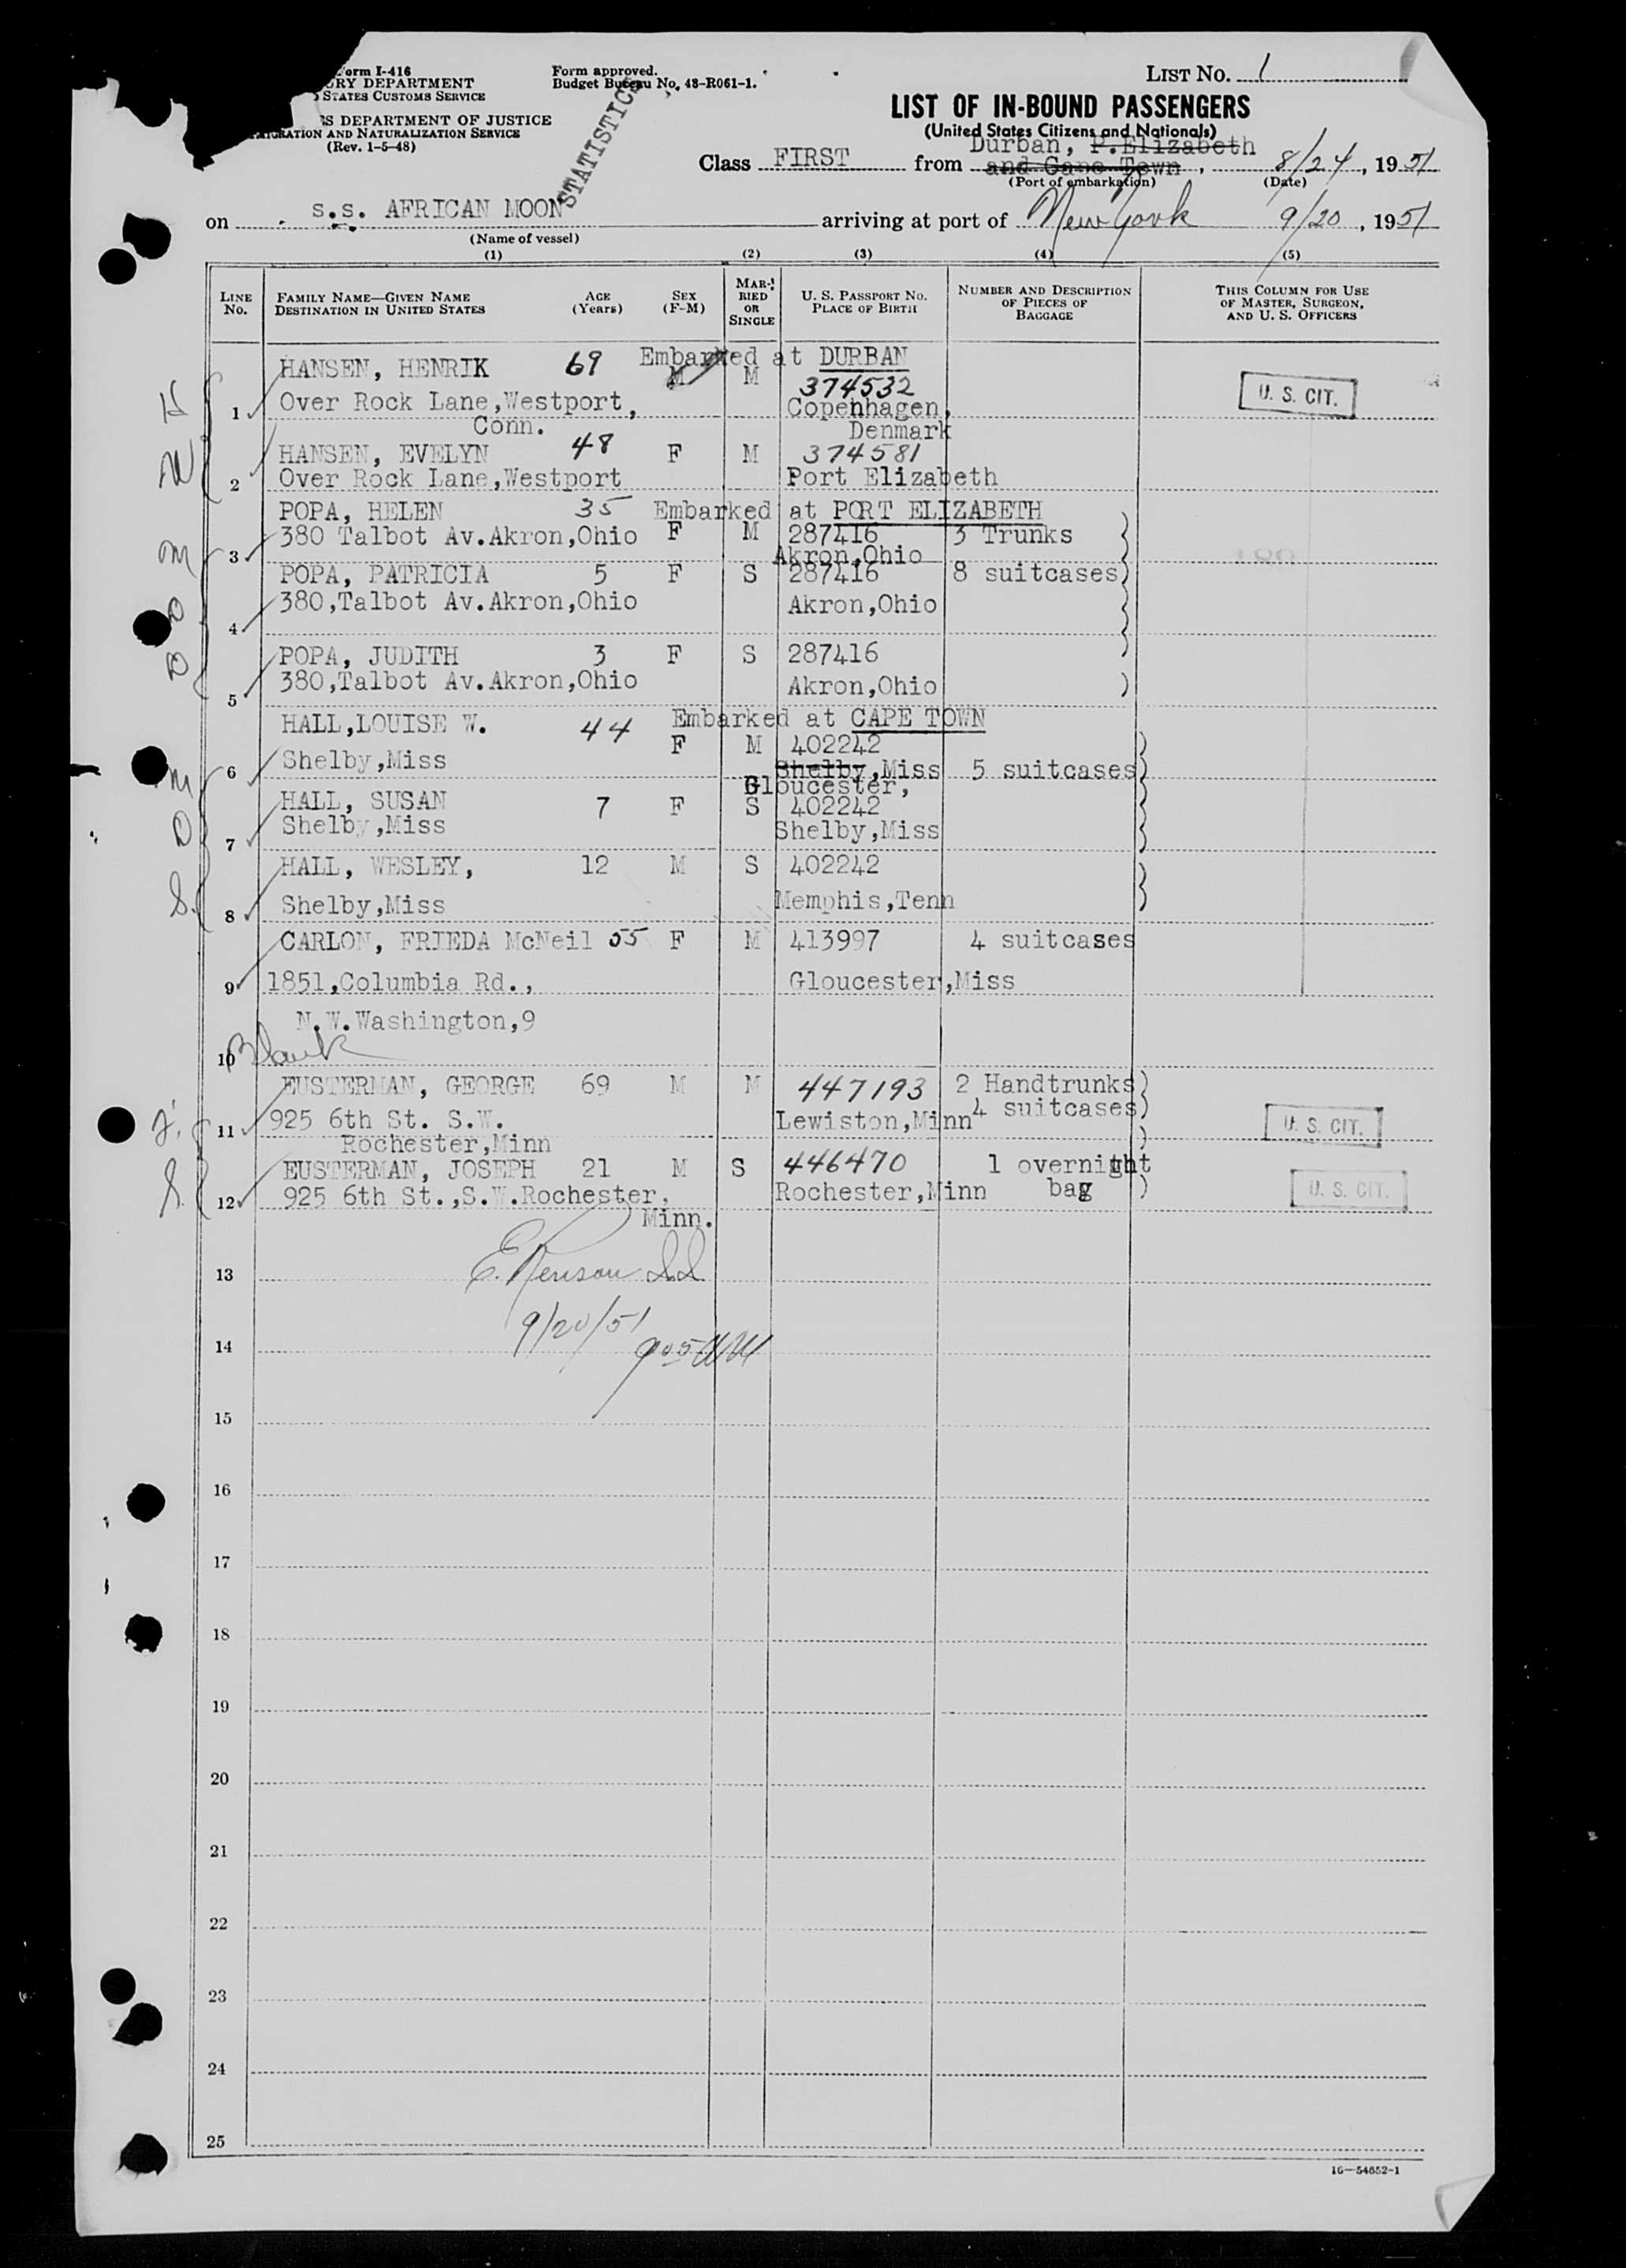 Form I-416
RY DEPARTMENT
STATES CUSTOMS SERVICE
S DEPARTMENT OF JUSTICE
RATION AND NATURALIZATION SERVICE
(Rev. 1-5-48)
Form approved.
Budget Bureau No. 48-R061-1.
STATISTICS
LIST NO. 1
LIST OF IN-BOUND PASSENGERS
(United States Citizens and Nationals)
Class FIRST from Durban, P.Elizabeth and Cape Town, 8/24, 1951
(Port of embarkation) (Date)
on s.s. AFRICAN MOON arriving at port of New York 9/20, 1951
(Name of vessel)
(1) (2) (3) (4) (5)
LINE NO. FAMILY NAME—GIVEN NAME DESTINATION IN UNITED STATES AGE (Years) SEX (F-M) MARRIED OR SINGLE U. S. PASSPORT NO. PLACE OF BIRTH NUMBER AND DESCRIPTION OF PIECES OF BAGGAGE THIS COLUMN FOR USE OF MASTER, SURGEON, AND U. S. OFFICERS
Embarked at DURBAN
HANSEN, HENRIK 69 M M 374532
1 Over Rock Lane,Westport, Copenhagen, U. S. CIT.
Conn. Denmark
HANSEN, EVELYN 48 F M 374581
2 Over Rock Lane,Westport Port Elizabeth
POPA, HELEN 35 Embarked at PORT ELIZABETH
3 380 Talbot Av.Akron,Ohio F M 287416 3 Trunks )
Akron,Ohio
POPA, PATRICIA 5 F S 287416 8 suitcases)
4 380,Talbot Av.Akron,Ohio Akron,Ohio
POPA, JUDITH 3 F S 287416
5 380,Talbot Av.Akron,Ohio Akron,Ohio )
HALL,LOUISE W. 44 Embarked at CAPE TOWN
F M 402242
6 Shelby,Miss Shelby,Miss 5 suitcases)
Gloucester,
HALL, SUSAN 7 F S 402242
7 Shelby,Miss Shelby,Miss
HALL, WESLEY, 12 M S 402242
8 Shelby,Miss Memphis,Tenn
CARLON, FRIEDA McNeil 55 F M 413997 4 suitcases
9 1851,Columbia Rd., Gloucester,Miss
N.W.Washington,9
10 Blank
EUSTERMAN, GEORGE 69 M M 447193 2 Handtrunks)
925 6th St. S.W. Lewiston,Minn 4 suitcases)
11 Rochester,Minn U. S. CIT.
EUSTERMAN, JOSEPH 21 M S 446470 1 overnight
12 925 6th St.,S.W.Rochester, Rochester,Minn bag ) U. S. CIT.
Minn.
13
9/20/51
14
15
16
17
18
19
20
21
22
23
24
25
16—54852-1